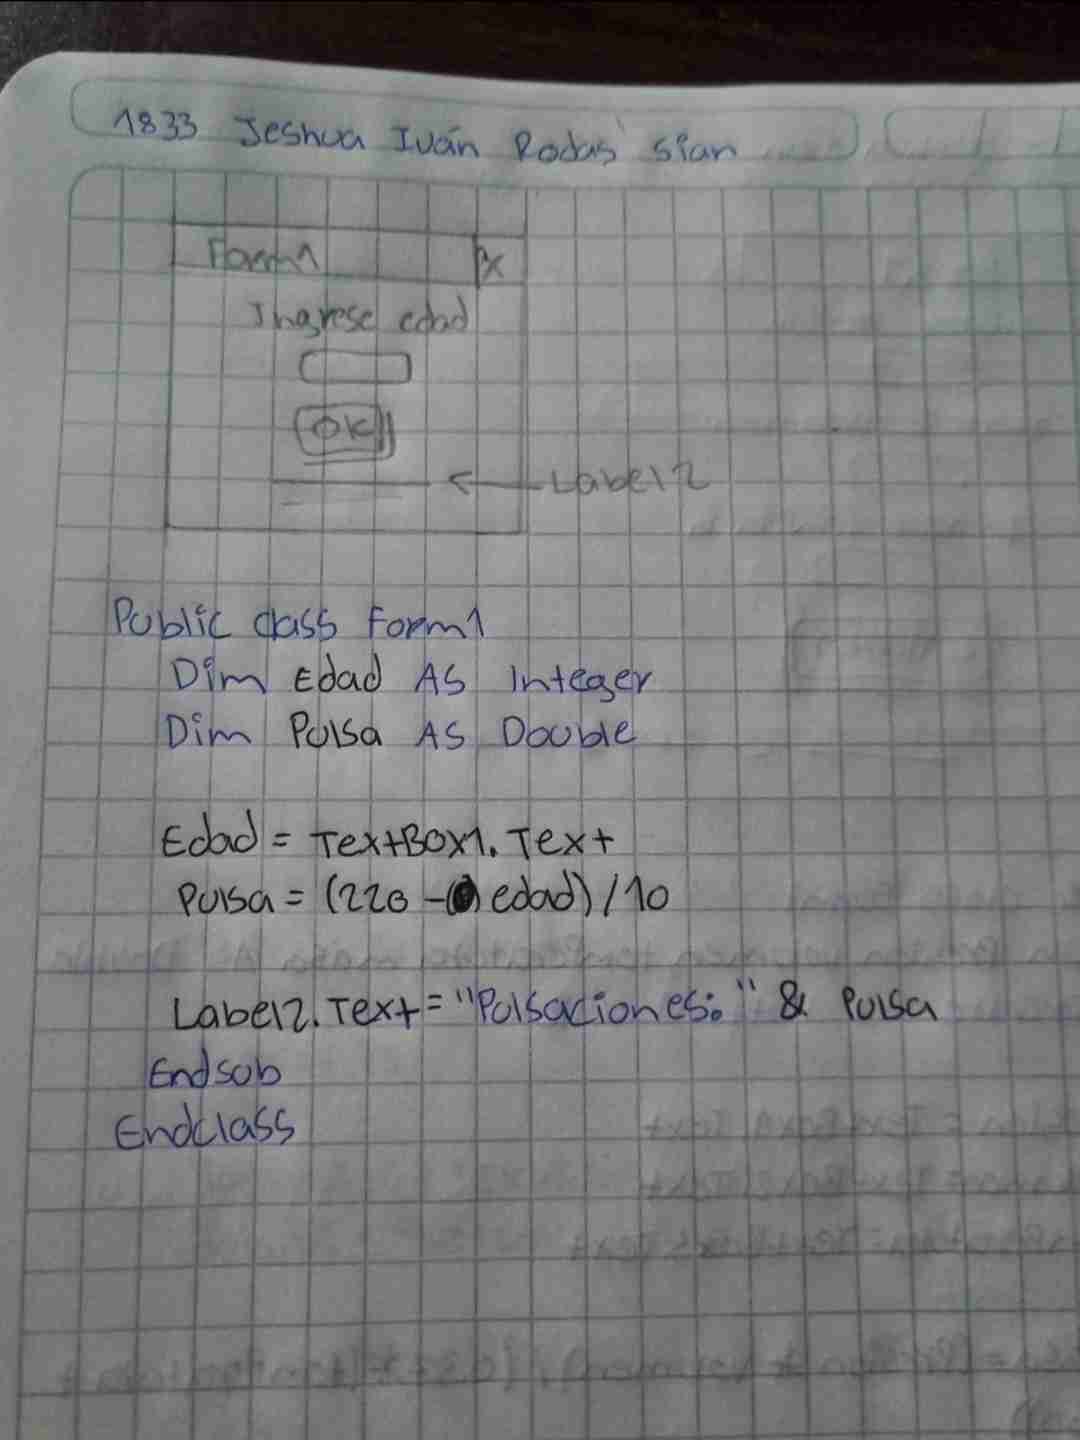 1833 Jeshua Iván Rodas sian
Form1 X
Ingrese edad
OK
Label2
Public class Form1
Dim Edad AS Integer
Dim Pulsa AS Double
Edad = TextBox1. Text
Pulsa = (220 - edad) / 10
Label2. Text = "Pulsaciones: " & Pulsa
Endsub
Endclass